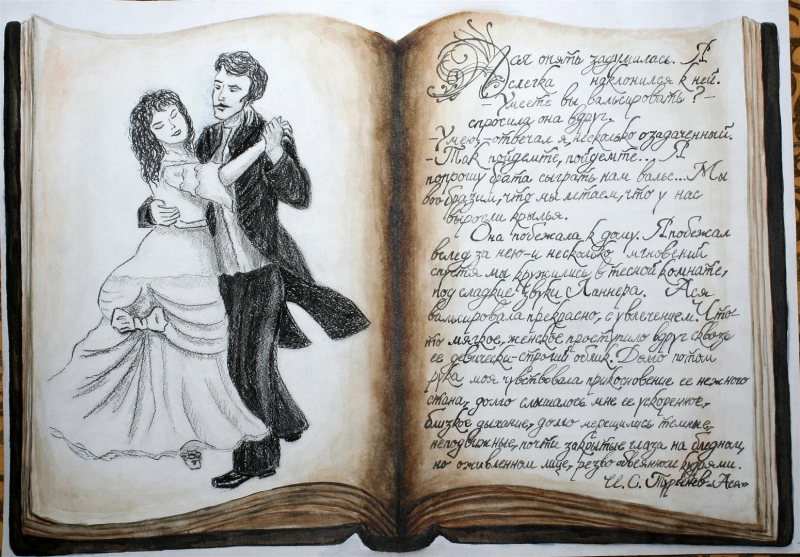 Ася опять задумалась. Я
слегка наклонился к ней.
- Умеете вы вальсировать? -
спросила она вдруг.
- Умею, - отвечал я, несколько озадаченный.
- Так пойдемте, пойдемте... Я
попрошу брата сыграть нам вальс... Мы
вообразим, что мы летаем, что у нас
выросли крылья.
Она побежала к дому. Я побежал
вслед за нею - и несколько мгновений
спустя мы кружились в тесной комнате,
под сладкие звуки Ланнера. Ася
вальсировала прекрасно, с увлечением. Что-
то мягкое, женское проступило вдруг сквозь
ее девически-строгий облик. Долго потом
рука моя чувствовала прикосновение ее нежного
стана, долго слышалось мне ее ускоренное,
близкое дыхание, долго мерещились темные,
неподвижные, почти закрытые глаза на бледном,
но оживленном лице, резво обвеянном кудрями.
И. С. Тургенев «Ася»